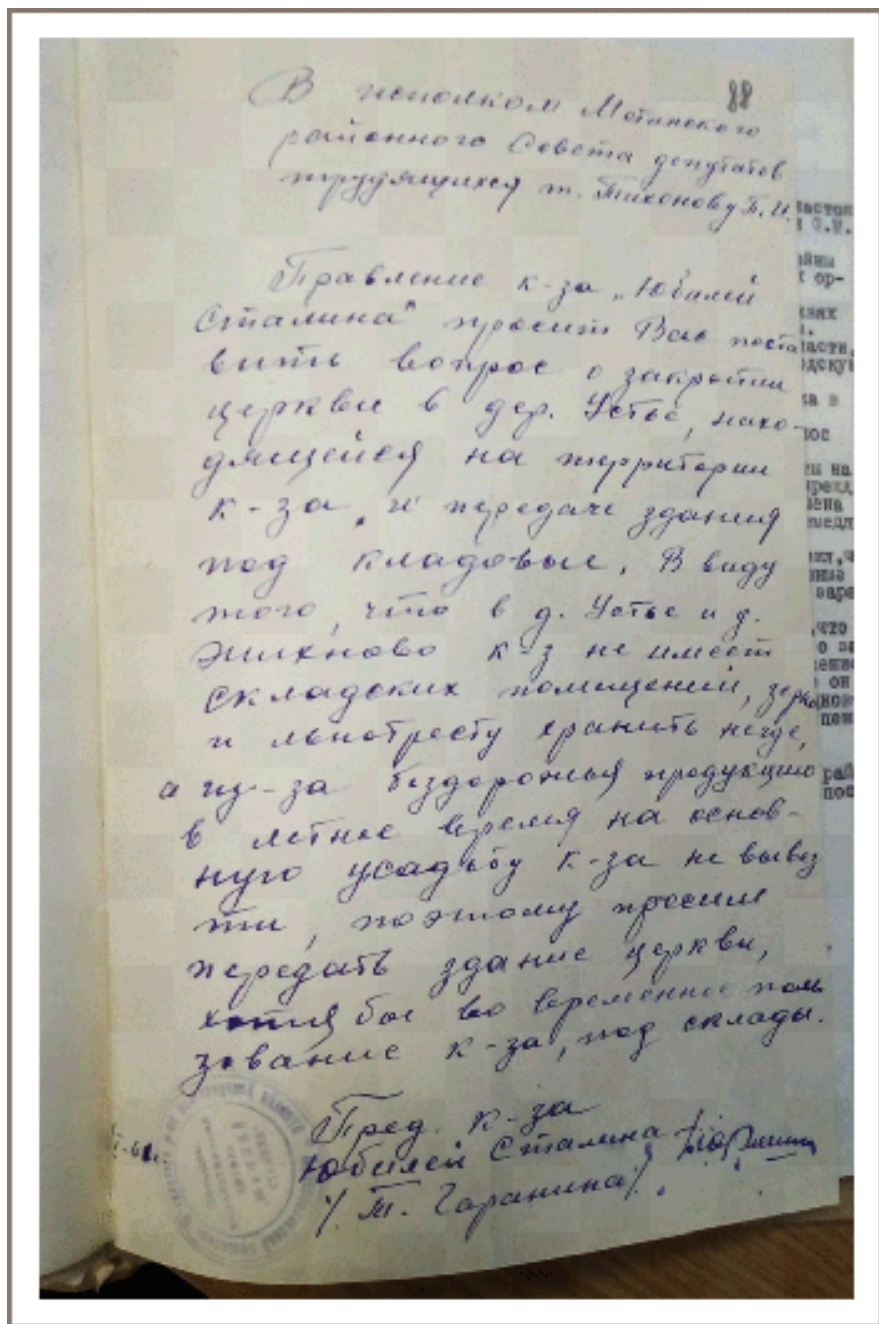 88
В исполком Мошенского
районного Совета депутатов
трудящихся т. Тихонову Б. И.
Правление к-за „Юбилей
Сталина" просит Вас поста
вить вопрос о закрытии
церкви в дер. Устье, нахо-
дящейся на территории
к-за, и передаче здания
под кладовые. В виду
того, что в д. Устье и д.
к-з не имеет
складских помещений, зерно
и льнотресту хранить негде,
а из-за бездорожья продукцию
в летнее время на основ-
ную усадьбу к-за не вывез
ти, поэтому просим
передать здание церкви,
хотя бы во временное поль
зование к-за, под склады.
Пред. к-за
Юбилей Сталина
/. Т. Гаранина/.